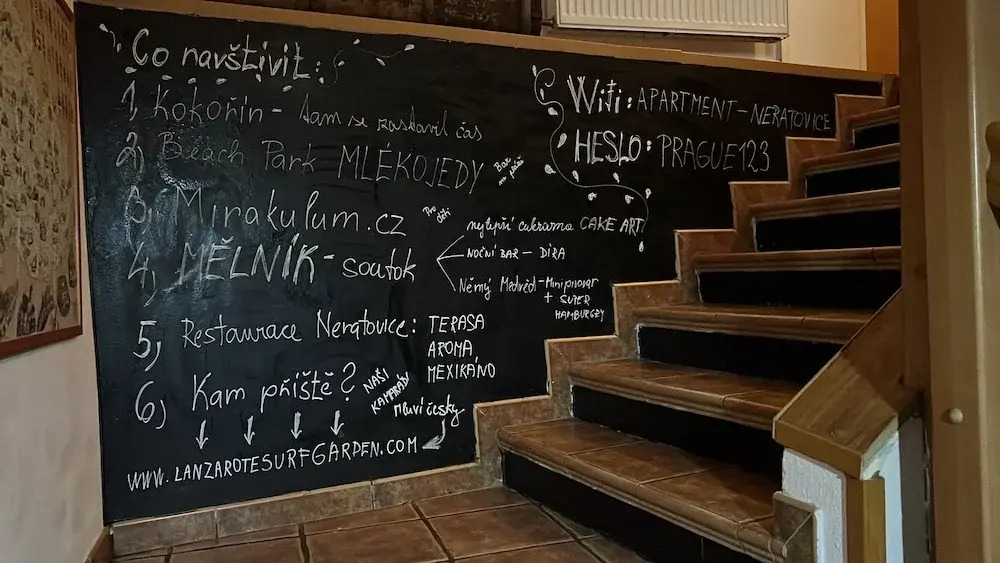 Co navštívit:
1, Kokořín - tam se zastavil čas
2, Beach Park MLÉKOJEDY Bar na pláži
3, Mirakulum.cz Pro děti
4, MĚLNÍK - soutok
nejlepší cukrárna CAKE ART
NOČNÍ BAR - DÍRA
Němý Medvěd - Minipivovar
+ SUPER
HAMBURGRY
5, Restaurace Neratovice: TERASA
AROMA
MEXIKÁNO
6, Kam příště? NAŠI KAMARÁDI
Mluví česky
WWW.LANZAROTESURFGARDEN.COM
Wifi: APARTMENT-NERATOVICE
HESLO: PRAGUE123